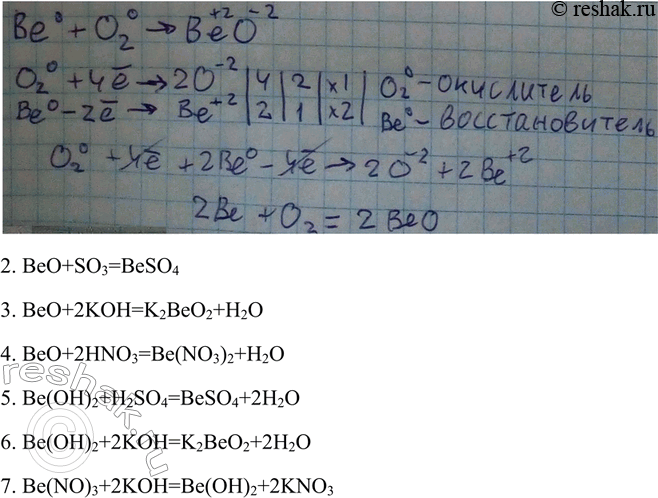 © reshak.ru
Be⁰ + O₂⁰ → Be⁺²O⁻²
O₂⁰ + 4ē → 2O⁻² | 4 | 2 | x1 | O₂⁰ - окислитель
Be⁰ - 2ē → Be⁺² | 2 | 1 | x2 | Be⁰ - восстановитель
O₂⁰ + 4ē + 2Be⁰ - 4ē → 2O⁻² + 2Be⁺²
2Be + O₂ = 2BeO
2. BeO+SO₃=BeSO₄
3. BeO+2KOH=K₂BeO₂+H₂O
4. BeO+2HNO₃=Be(NO₃)₂+H₂O
5. Be(OH)₂+H₂SO₄=BeSO₄+2H₂O
6. Be(OH)₂+2KOH=K₂BeO₂+2H₂O
7. Be(NO)₃+2KOH=Be(OH)₂+2KNO₃
reshak.ru
©